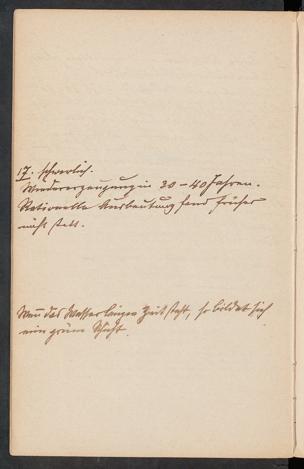 17. schwerlich.
Wiedererzeugung in 30–40 Jahren.
Rationelle Ausbeutung fand früher
nicht statt.
Wenn das Wasser längere Zeit steht, so bildet sich
eine grüne Schicht.